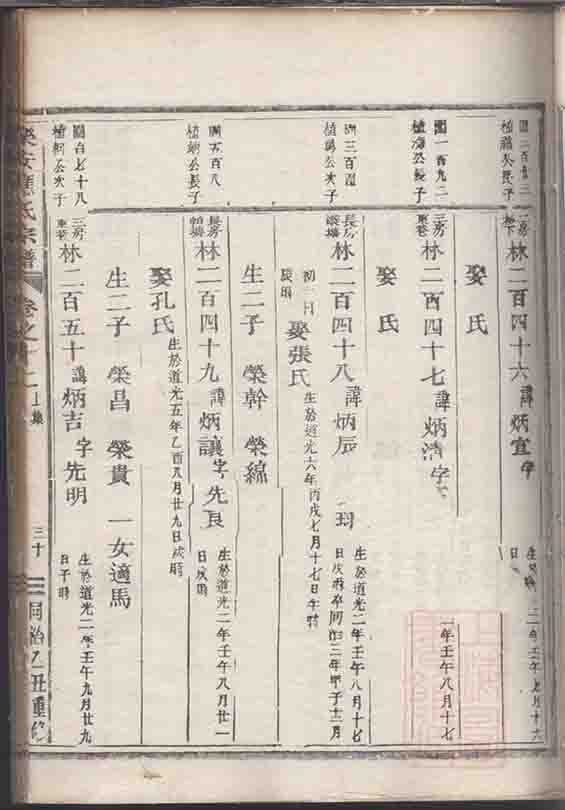 二房
林二百四十六諱炳宜字
年壬午七月十六
日
娶 氏
植海公長子
三房
林二百四十七諱炳清字
一年壬午八月十七
娶 氏
三百
植 公次子
長房
林二百四十八諱炳辰
生於道光二年壬午八月十七
日戌時卒同治三年甲子十二月
初二日
辰時
娶張氏
生於道光六年丙戌七月十七日午時
生二子 榮幹 榮綿
五百八
植 公長子
長房
林二百四十九諱炳讓字先良
生於道光二年壬午八月廿一
日戌時
娶孔氏
生於道光五年乙酉八月廿九日戌時
生二子 榮昌 榮貴 一女適馬
百七十八
植 公次子
三房
林二百五十諱炳吉字先明
生於道光二年壬午九月廿九
日子時
樂安 氏宗譜 卷之 二 上集 三十 同治乙丑重修